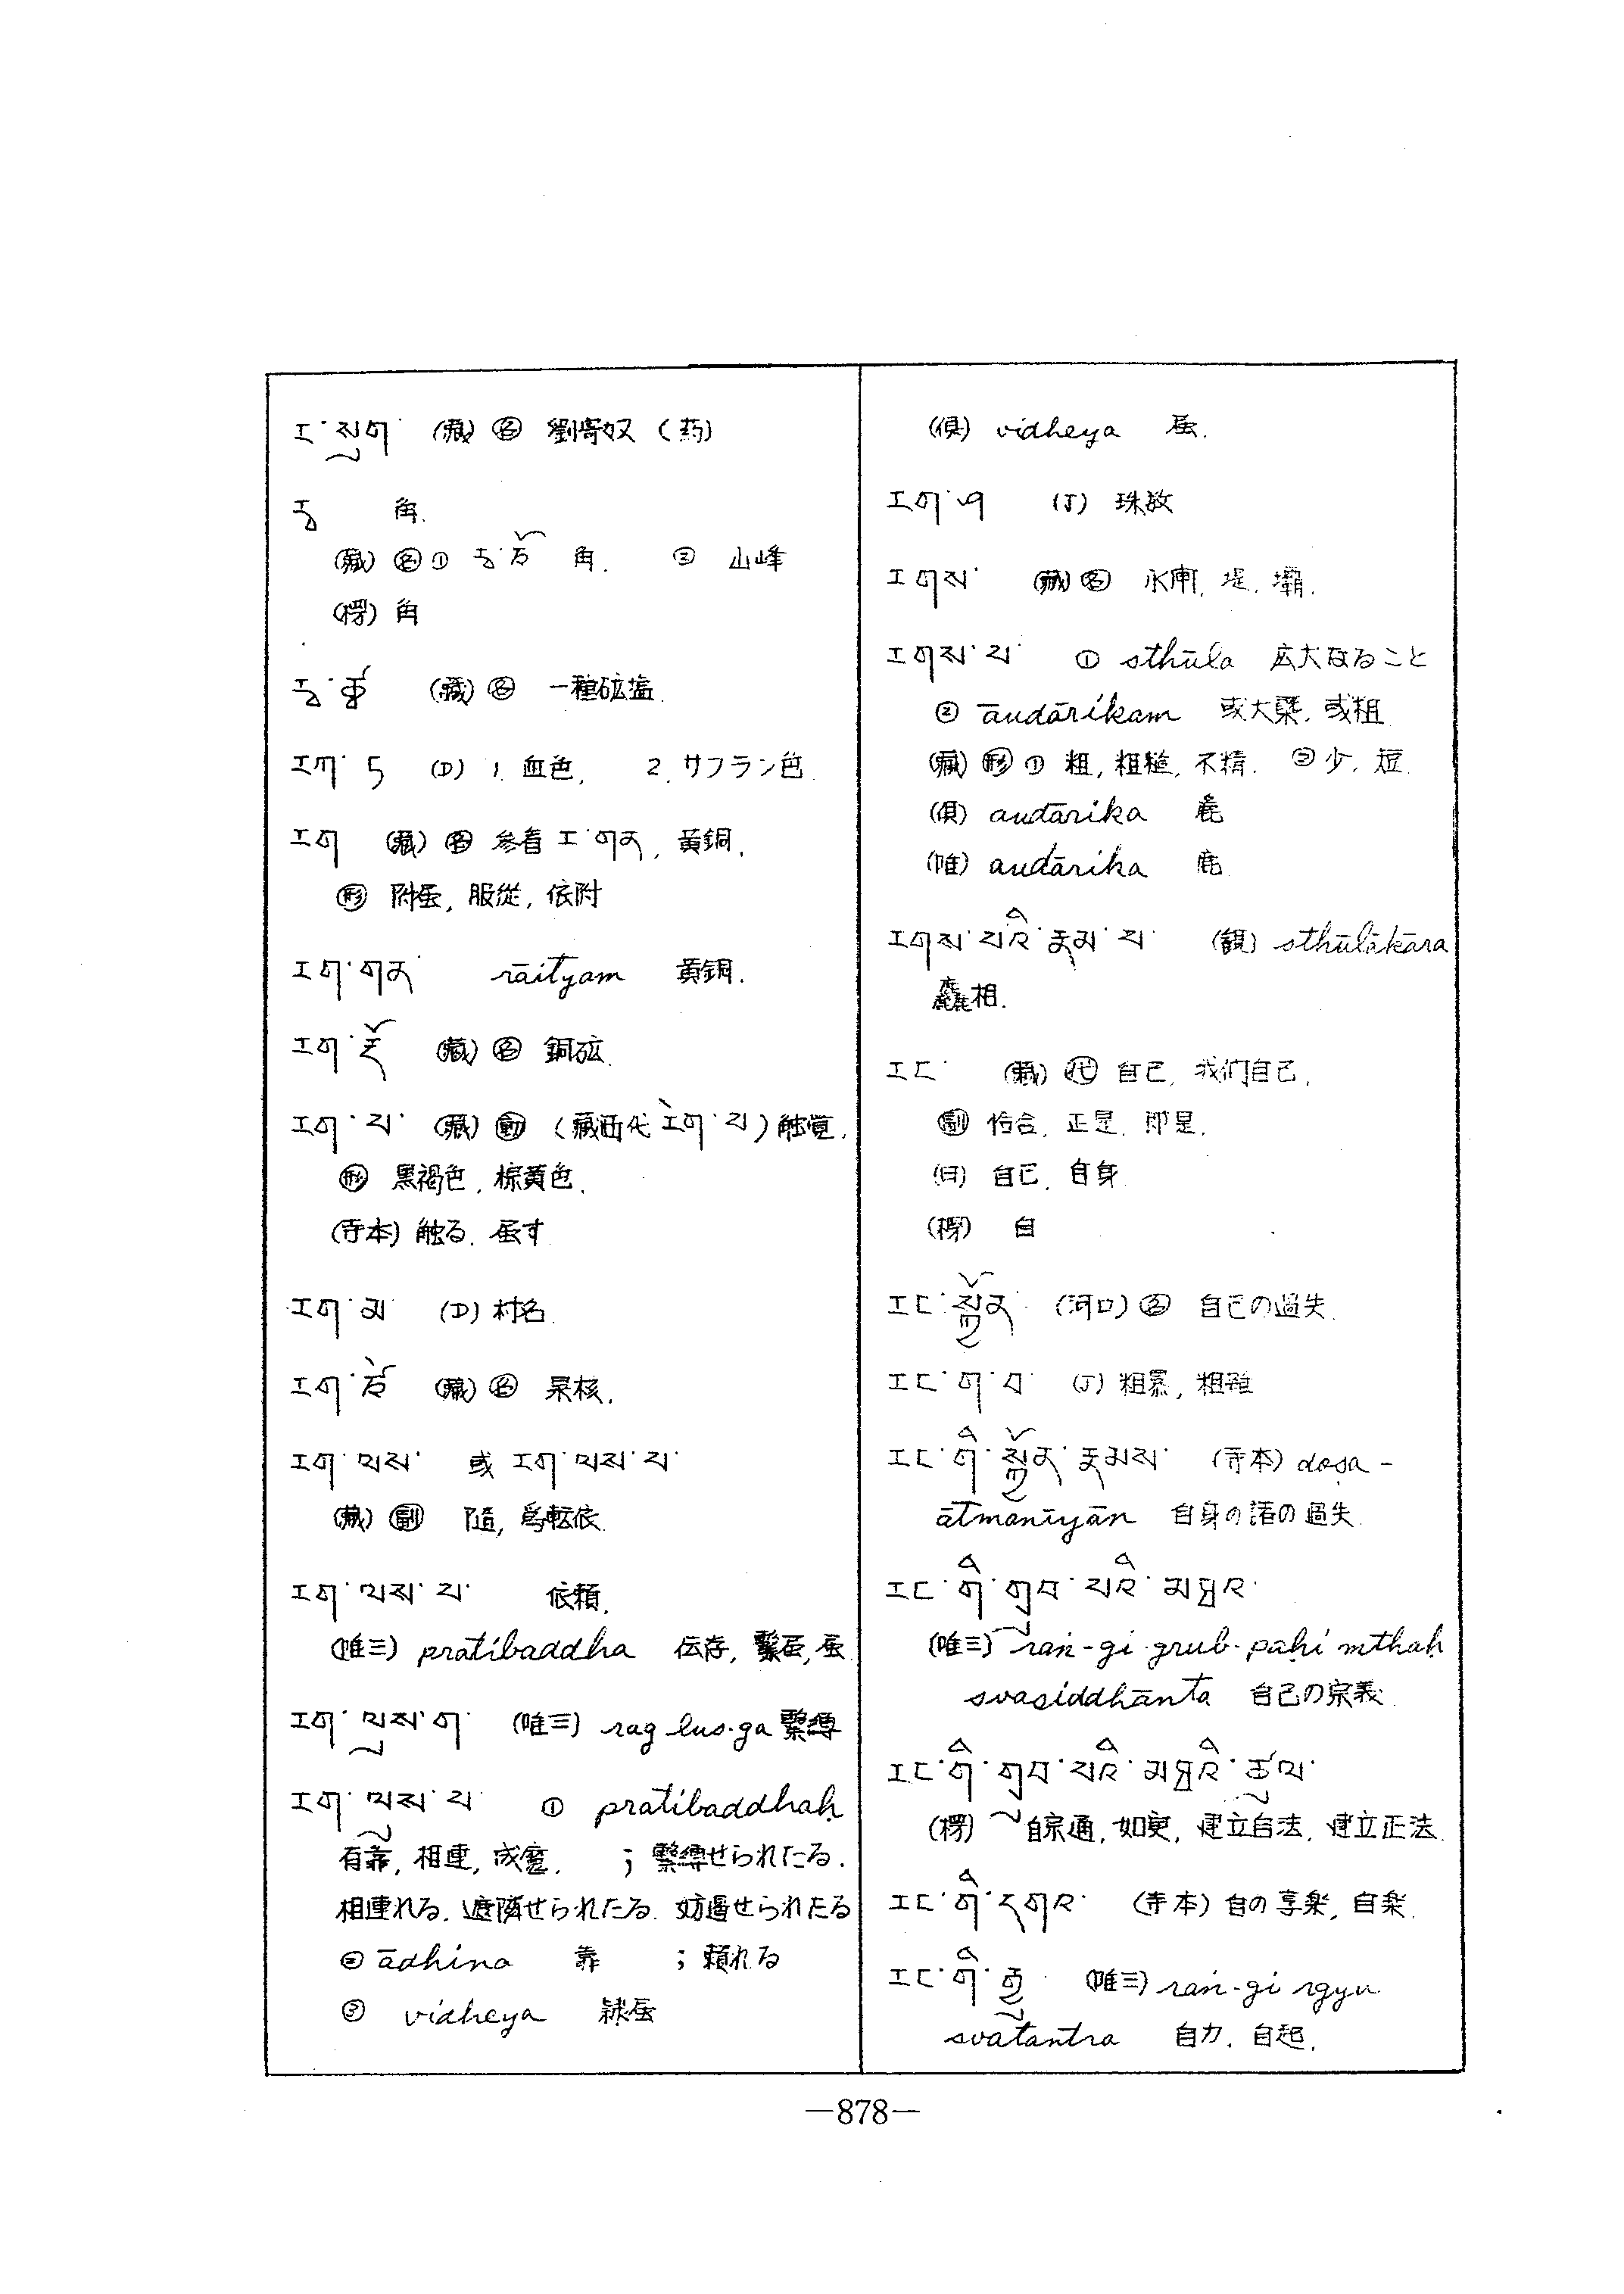 ར་སུག་ (蔵) ㊔ 劉寄奴 (药)
རྭ 角.
(蔵) ㊔ ① རྭ་ཅོ 角. ② 山峰
(楞) 角
རྭ་ཚྭ (蔵) ㊔ 一種砿塩.
རག་ཏ (D) 1. 血色, 2. サフラン色.
རག (蔵) ㊔ 参看 ར་གན, 黄銅,
㊒ 附属, 服從, 依附
རག་གན rāityam 黄銅.
རག་རྡོ (蔵) ㊔ 銅砿.
རག་པ་ (蔵) 動 (蔵西代 རེག་པ) 触覚,
形 黒褐色, 棕黄色.
(寺本) 触る, 屬す
རག་མ (D) 村名.
རག་ཙེ (蔵) 名 果核.
རག་ལས་ 或 རག་ལས་པ་
(蔵) 副 隨, 為転依.
རག་ལས་པ་ 依頼.
(唯三) pratibaddha 伝存, 繫屬, 属
རག་ལུས་ག (唯三) rag lus-ga 繫縛
རག་ལུས་པ ① pratibaddhaḥ
有靠, 相連, 成 . ; 繫縛せられたる.
相連れる. 遮隣せられたる. 妨遏せられたる
② ādhina 靠 ; 頼れる
③ vidheya 隷属
(倶) vidheya 属.
རག་ཤ (J) 珠数
རགས་ (蔵) 名 水庫, 堤, 壩.
རགས་པ་ ① sthūla 広大なること
② āudārikam 或大 , 或粗
(蔵) 形 ① 粗, 粗糙, 不精. ② 少, 短.
(倶) audārika 麁
(唯) audārika 麁
རགས་པའི་རྣམ་པ་ (観) sthūlākāra
麤相.
རང་ (蔵) 代 自己, 我们自己,
副 恰合, 正是, 即是.
(日) 自己, 自身
(楞) 自
རང་སྐྱོན་ (河口) 名 自己の過失.
རང་ག་བ་ (J) 粗慕, 粗雑
རང་གི་སྐྱོན་རྣམས་ (寺本) doṣa-
ātmanīyān 自身の諸の過失.
རང་གི་གྲུབ་པའི་མཐའ་
(唯三) raṅ-gi grub-paḥi mthaḥ
svasiddhānta 自己の宗義.
རང་གི་གྲུབ་པའི་མཐའི་ཚུལ་
(楞) 自宗通, 如実, 建立自法, 建立正法.
རང་གི་དགའ་ (寺本) 自の享楽, 自楽.
རང་གི་རྒྱུ (唯三) raṅ-gi rgyu
svatantra 自力, 自起.
—878—